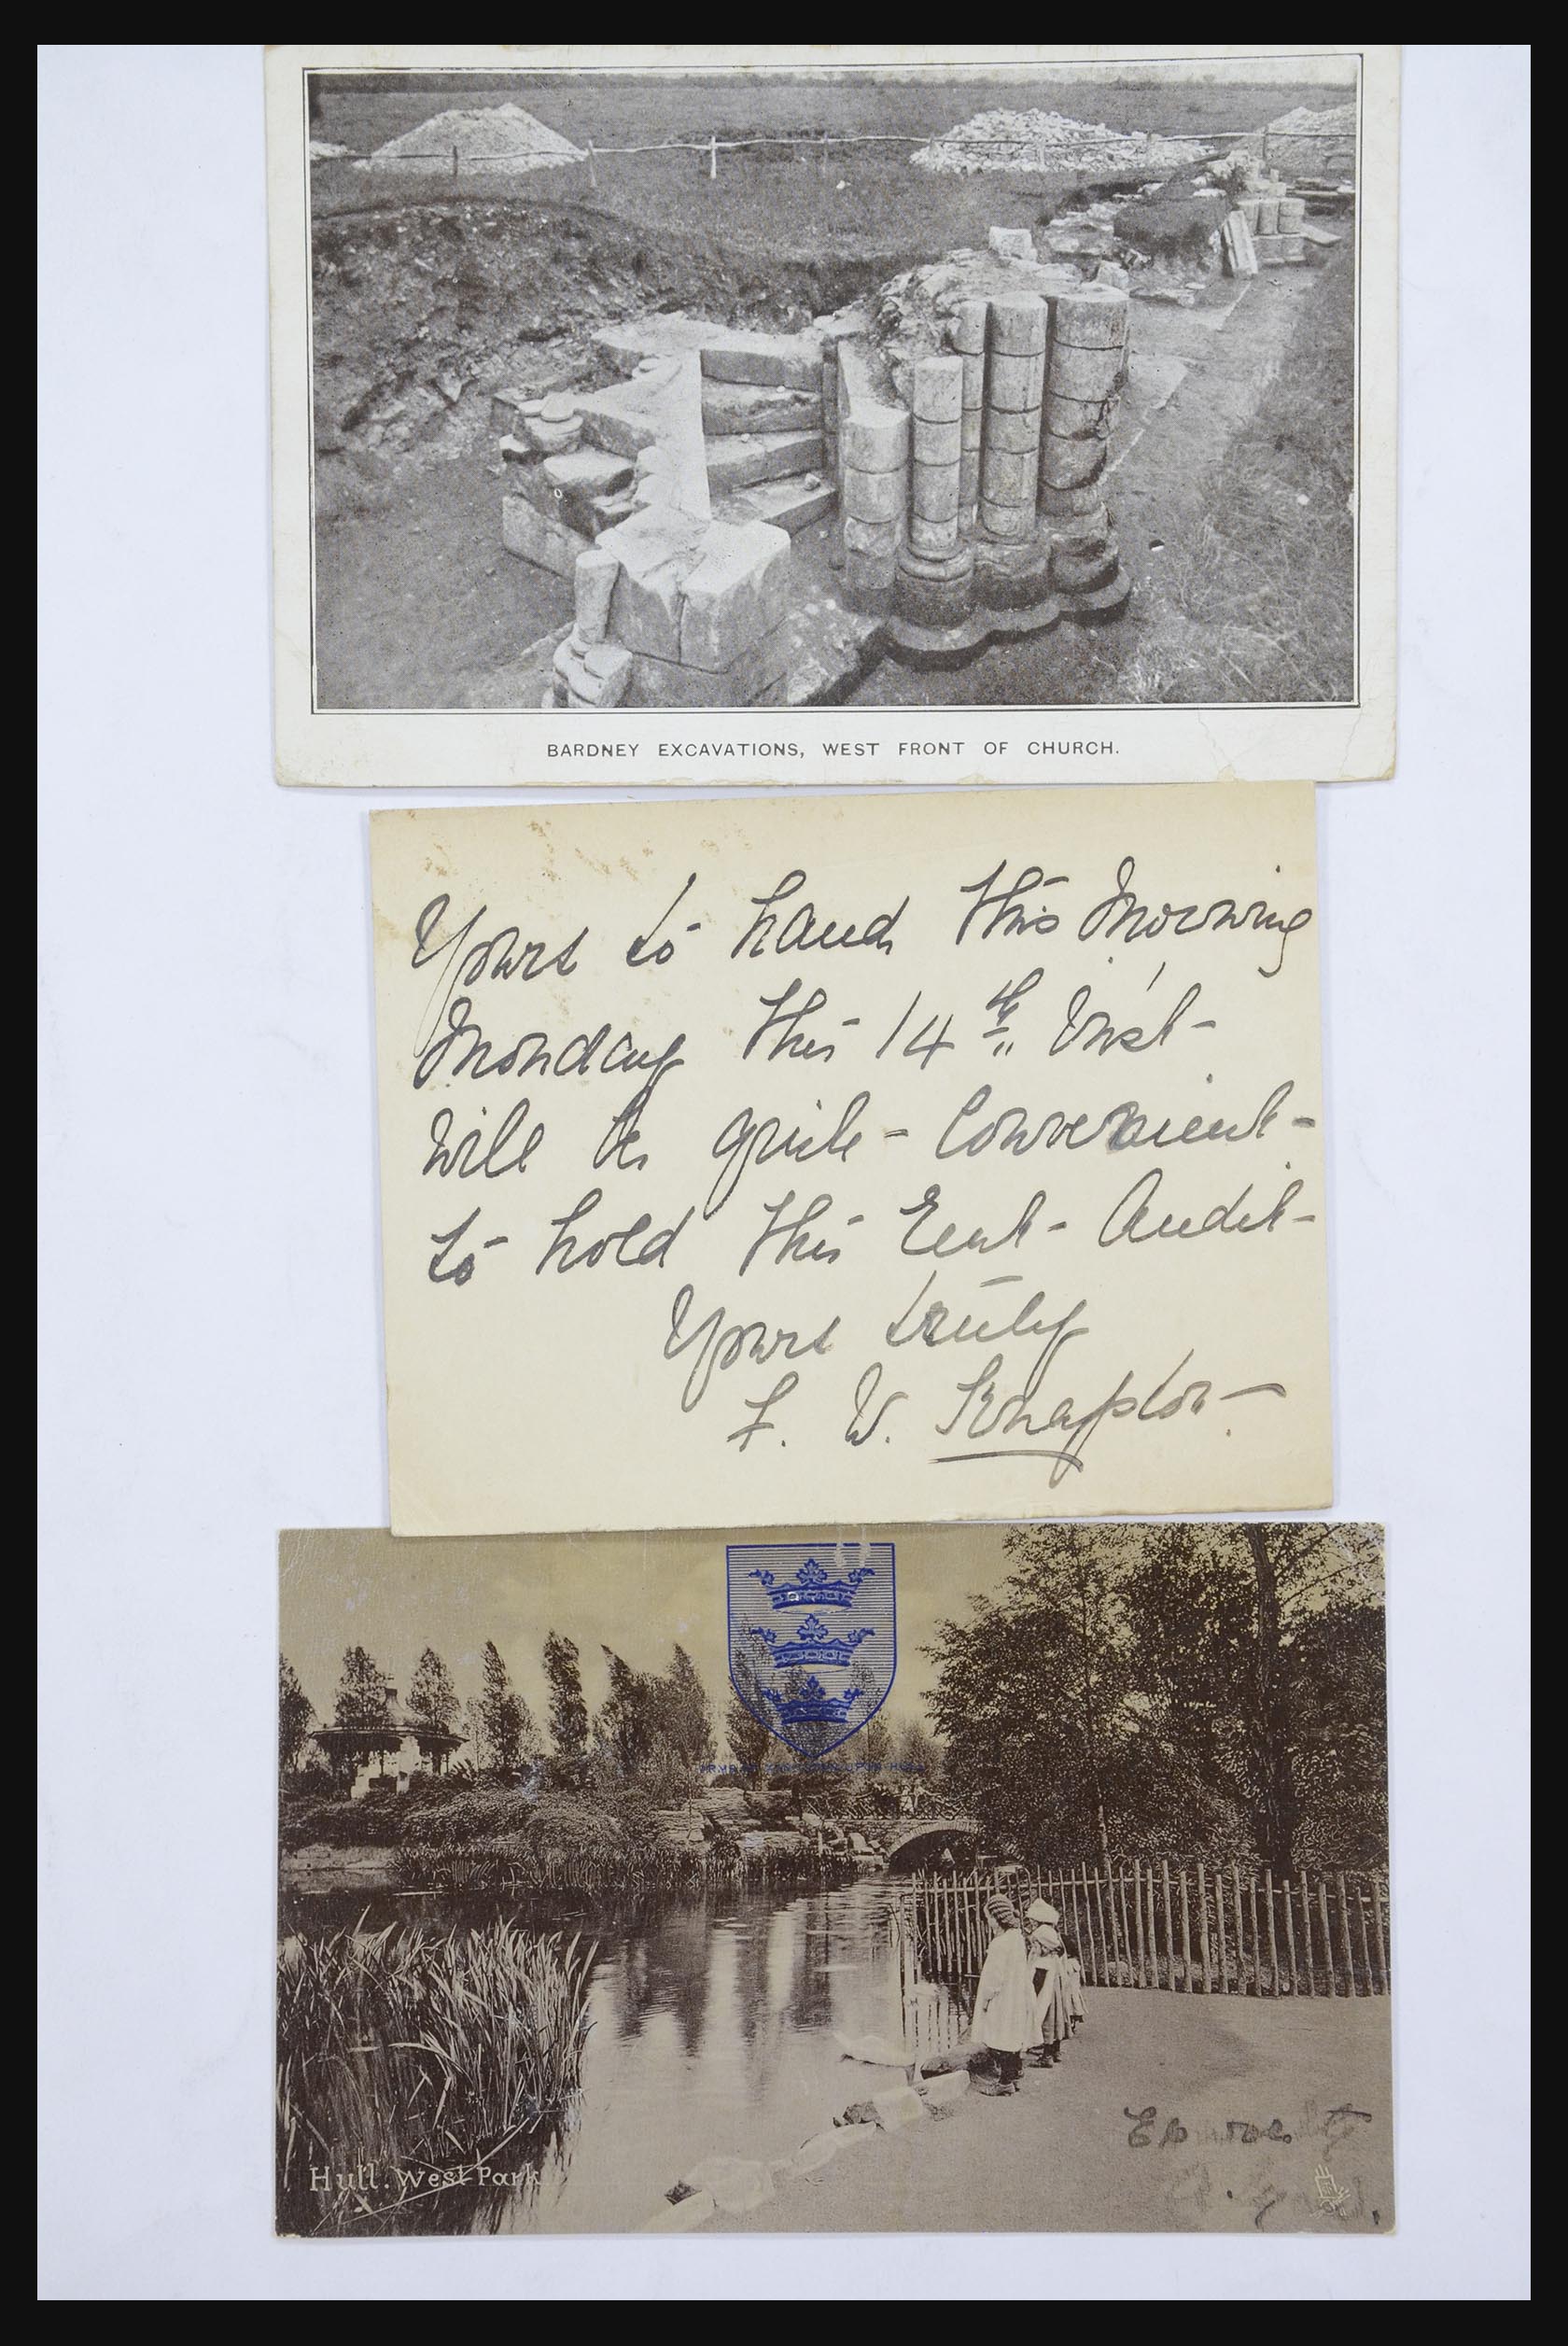 BARDNEY EXCAVATIONS, WEST FRONT OF CHURCH.
Yours to hand this Morning
Monday the 14th Inst-
Will be quite - Convenient -
to hold the Rent - Audit -
Yours truly
F. W. Knapton
ARMS OF KINGSTON UPON HULL
Hull. West Park